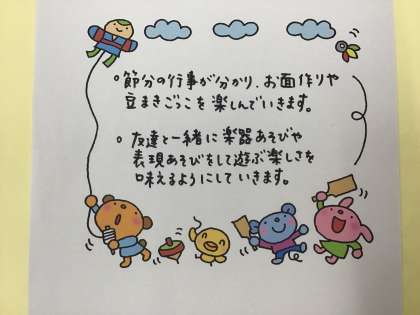 ○節分の行事が分かり、お面作りや
豆まきごっこを楽しんでいきます。
○友達と一緒に楽器あそびや
表現あそびをして遊ぶ楽しさを
味えるようにしていきます。